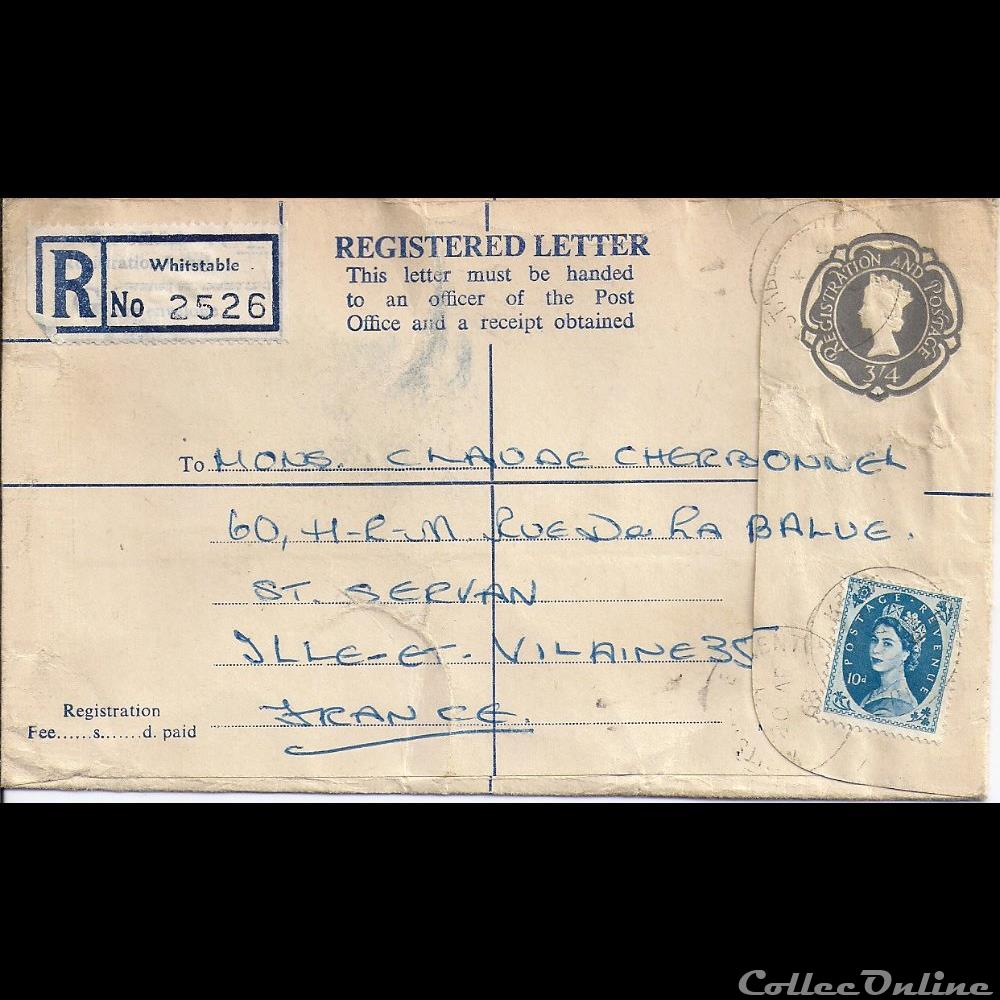 R
Whitstable
No 2526
REGISTERED LETTER
This letter must be handed
to an officer of the Post
Office and a receipt obtained
REGISTRATION AND POSTAGE
3/4
To MONS. CLAUDE CHERBONNEL
60, H-R-M RUE De La BALUE.
ST. SERVAN
ILLE-ET-VILAINE 35
FRANCE.
POSTAGE REVENUE
10d
Registration
Fee......s......d. paid
ColleeOnline